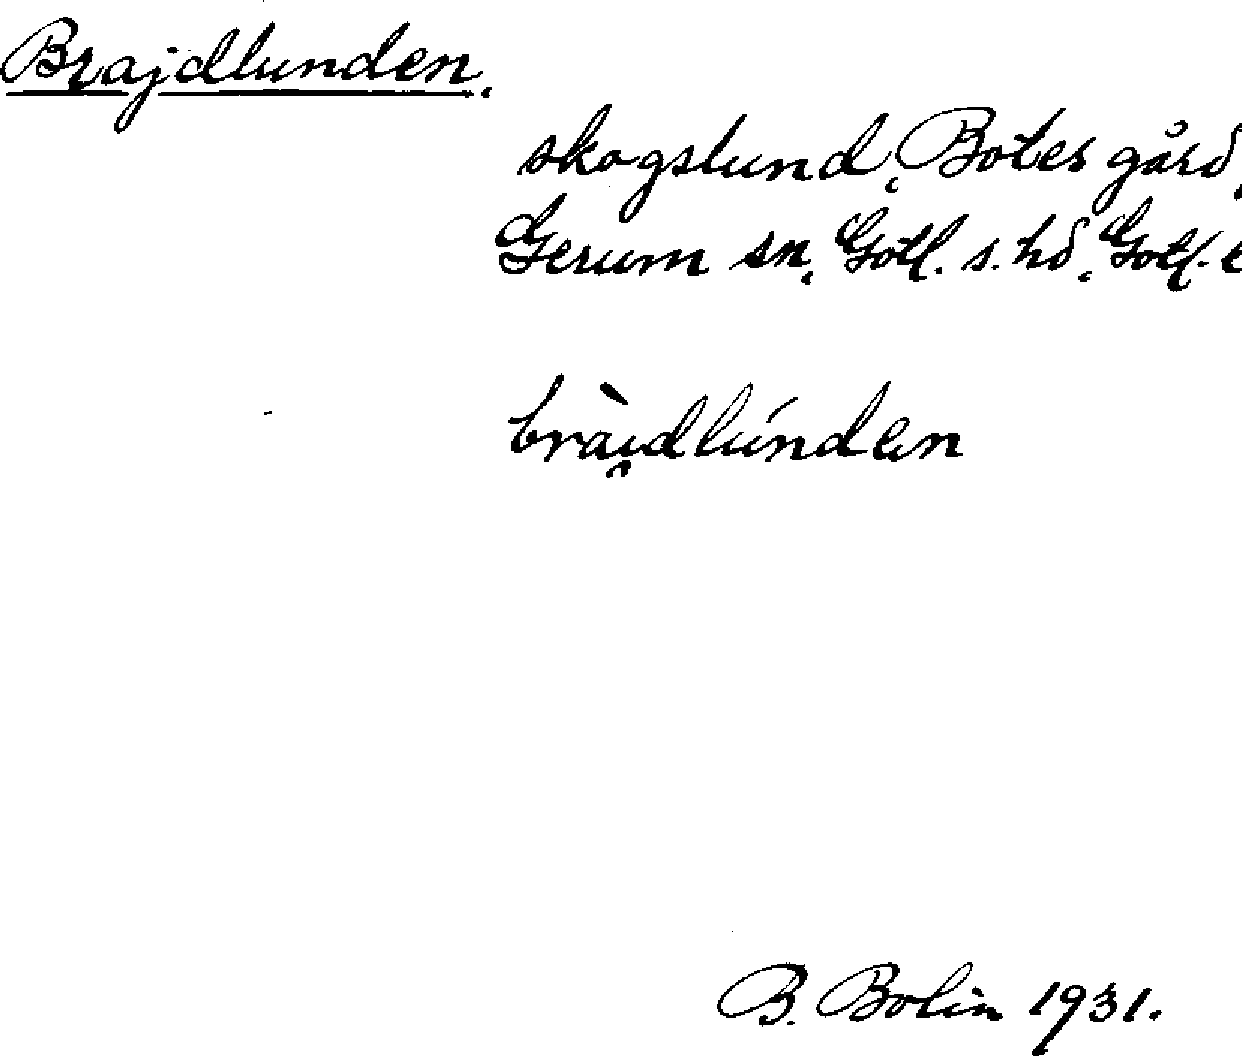 Brajdlunden.
skogslund, Botes gård,
Gerum sn, Gotl. s. hd, Gotl.
bràı̯dlúndən
B. Bolin 1931.